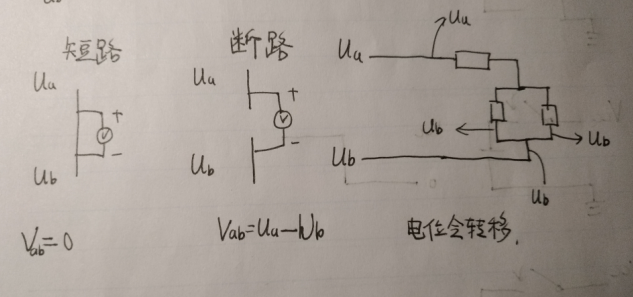 短路
Ua
+
V
-
Ub
Vab=0
断路
Ua
+
V
-
Ub
Vab=Ua-Ub
Ua
Ua
Ub
Ub
Ub
Ub
电位会转移.